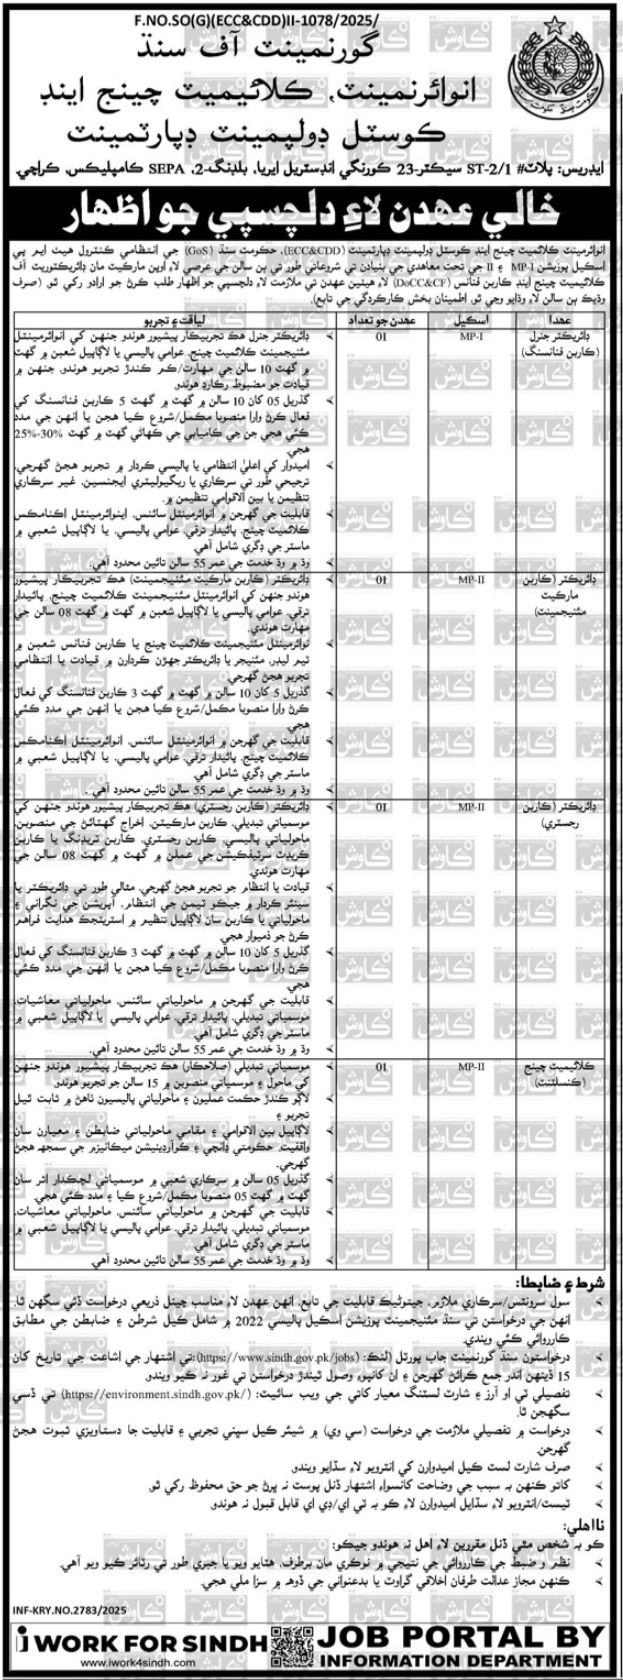 F.NO.SO(G)(ECC&CDD)II-1078/2025/
گورنمينٽ آف سنڌ
انوائرنمينٽ، ڪلائيميٽ چينج اينڊ
ڪوسٽل ڊولپمينٽ ڊپارٽمينٽ
ايڊريس: پلاٽ# ST-2/1 سيڪٽر-23 ڪورنگي انڊسٽريل ايريا، بلڊنگ-2، SEPA ڪامپليڪس، ڪراچي.
خالي عهدن لاءِ دلچسپي جو اظهار
انوائرمينٽ ڪلائميٽ چينج اينڊ ڪوسٽل ڊولپمينٽ ڊپارٽمينٽ (ECC&CDD)، حڪومت سنڌ (GoS) جي انتظامي ڪنٽرول هيٺ ايم پي
اسڪيل پوزيشن MP-I ۽ II جي تحت معاهدي جي بنيادن تي شروعاتي طور تي ٻن سالن جي عرصي لاءِ اوپن مارڪيٽ مان ڊائريڪٽوريٽ آف
ڪلائيميٽ چينج اينڊ ڪاربن فنانس (DoCC&CF) لاءِ هيٺين عهدن تي ملازمت لاءِ دلچسپي جو اظهار طلب ڪرڻ جو ارادو رکي ٿو (صرف
وڌيڪ ٻن سالن لاءِ وڌايو وڃي ٿو، اطمينان بخش ڪارڪردگي جي تابع).
عهدا
اسڪيل
عهدن جو تعداد
لياقت ۽ تجربو
ڊائريڪٽر جنرل
(ڪاربن فنانسنگ)
MP-I
01
ڊائريڪٽر جنرل هڪ تجربيڪار پيشيور هوندو جنهن کي انوائرمينٽل
مئنيجمينٽ ڪلائميٽ چينج، عوامي پاليسي يا لاڳاپيل شعبن ۾ گهٽ
۾ گهٽ 10 سالن جي مهارت/ڪم ڪندڙ تجربو هوندو، جنهن ۾
قيادت جو مضبوط رڪارڊ هوندو.
گذريل 05 کان 10 سالن ۾ گهٽ ۾ گهٽ 5 ڪاربن فنانسنگ کي
فعال ڪرڻ وارا منصوبا مڪمل/شروع ڪيا هجن يا انهن جي مدد
ڪئي هجي جن جي ڪاميابي جي ڪهاڻي گهٽ ۾ گهٽ 30%-25%
هجي.
اميدوار کي اعليٰ انتظامي يا پاليسي ڪردار ۾ تجربو هجڻ گهرجي،
ترجيحي طور تي سرڪاري يا ريگيوليٽري ايجنسين، غير سرڪاري
تنظيمن يا بين الاقوامي تنظيمن ۾.
قابليت جي گهرجن ۾ انوائرمينٽل سائنس، اينوائرمينٽل اڪنامڪس
ڪلائميٽ چينج، پائيدار ترقي، عوامي پاليسي، يا لاڳاپيل شعبي ۾
ماستر جي ڊگري شامل آهي.
وڌ ۾ وڌ خدمت جي عمر 55 سالن تائين محدود آهي.
ڊائريڪٽر (ڪاربن
مارڪيٽ
مئنيجمينٽ)
MP-II
01
ڊائريڪٽر (ڪاربن مارڪيٽ مئنيجمينٽ) هڪ تجربيڪار پيشيور
هوندو جنهن کي انوائرمينٽل مئنيجمينٽ ڪلائميٽ چينج، پائيدار
ترقي، عوامي پاليسي يا لاڳاپيل شعبن ۾ گهٽ ۾ گهٽ 08 سالن جي
مهارت هوندي.
نوائرمينٽل مئنيجمينٽ ڪلائميٽ چينج يا ڪاربن فنانس شعبن ۾
ٽيم ليڊر، مئنيجر يا ڊائريڪٽر جهڙن ڪردارن ۾ قيادت يا انتظامي
تجربو هجڻ گهرجي.
گذريل 5 کان 10 سالن ۾ گهٽ ۾ گهٽ 3 ڪاربن فنانسنگ کي فعال
ڪرڻ وارا منصوبا مڪمل/شروع ڪيا هجن يا انهن جي مدد ڪئي
هجي.
قابليت جي گهرجن ۾ انوائرمينٽل سائنس، انوائرمينٽل اڪنامڪس
ڪلائميٽ چينج، پائيدار ترقي، عوامي پاليسي، يا لاڳاپيل شعبي ۾
ماستر جي ڊگري شامل آهي.
وڌ ۾ وڌ خدمت جي عمر 55 سالن تائين محدود آهي.
ڊائريڪٽر (ڪاربن
رجسٽري)
MP-II
01
ڊائريڪٽر (ڪاربن رجسٽري) هڪ تجربيڪار پيشيور هوندو جنهن کي
موسمياتي تبديلي، ڪاربن مارڪيٽن، اخراج گهٽائڻ جي منصوبن،
ماحولياتي پاليسي، ڪاربن رجسٽري، ڪاربن ٽريڊنگ يا ڪاربن
ڪريڊٽ سرٽيفڪيشن جي عملن ۾ گهٽ ۾ گهٽ 08 سالن جي
مهارت هوندي.
قيادت يا انتظام جو تجربو هجڻ گهرجي، مثالي طور تي ڊائريڪٽر يا
سينئر ڪردار ۾ جيڪو ٽيمن جي انتظام، آپريشن جي نگراني ۽
ماحولياتي يا ڪاربن سان لاڳاپيل تنظيم ۾ اسٽريٽجڪ هدايت فراهم
ڪرڻ جو ذميوار هجي.
گذريل 5 کان 10 سالن ۾ گهٽ ۾ گهٽ 3 ڪاربن فنانسنگ کي فعال
ڪرڻ وارا منصوبا مڪمل/شروع ڪيا هجن يا انهن جي مدد ڪئي
هجي.
قابليت جي گهرجن ۾ ماحولياتي سائنس، ماحولياتي معاشيات،
موسمياتي تبديلي، پائيدار ترقي، عوامي پاليسي يا لاڳاپيل شعبي ۾
ماستر جي ڊگري شامل آهي.
وڌ ۾ وڌ خدمت جي عمر 55 سالن تائين محدود آهي.
ڪلائيميٽ چينج
(ڪنسلٽنٽ)
MP-II
01
موسمياتي تبديلي (صلاحڪار) هڪ تجربيڪار پيشيور هوندو جنهن
کي ماحول ۽ موسمياتي منصوبن ۾ 15 سالن جو تجربو هوندو.
لاڳو ڪندڙ حڪمت عمليون ۽ ماحولياتي پاليسيون ٺاهڻ ۾ ثابت ٿيل
تجربو ۽
لاڳاپيل بين الاقوامي ۽ مقامي ماحولياتي ضابطن ۽ معيارن سان
واقفيت، حڪومتي ڍانچي ۽ ڪوآرڊينيشن ميڪانيزم جي سمجهه هجڻ
گهرجي.
گذريل 05 سالن ۾ سرڪاري شعبي ۾ موسمياتي لچڪدار اثر سان
گهٽ ۾ گهٽ 05 منصوبا مڪمل/شروع ڪيا ۽ مدد ڪئي هجي.
قابليت جي گهرجن ۾ ماحولياتي سائنس، ماحولياتي معاشيات،
موسمياتي تبديلي، پائيدار ترقي، عوامي پاليسي يا لاڳاپيل شعبي ۾
ماستر جي ڊگري شامل آهي.
وڌ ۾ وڌ خدمت جي عمر 55 سالن تائين محدود آهي.
شرط ۽ ضابطا:
سول سرونٽس/سرڪاري ملازم، جيتوڻيڪ قابليت جي تابع، انهن عهدن لاءِ مناسب چينل ذريعي درخواست ڏئي سگهن ٿا.
انهن جي درخواستن تي سنڌ مئنيجمينٽ پوزيشن اسڪيل پاليسي 2022 ۾ شامل ڪيل شرطن ۽ ضابطن جي مطابق
ڪارروائي ڪئي ويندي.
درخواستون سنڌ گورنمينٽ جاب پورٽل (لنڪ: https://www.sindh.gov.pk/jobs):تي اشتهار جي اشاعت جي تاريخ کان
15 ڏينهن اندر جمع ڪرائڻ گهرجن ۽ ان کانپوءِ وصول ٿيندڙ درخواستن تي غور نه ڪيو ويندو.
تفصيلي ٽي او آرز ۽ شارٽ لسٽنگ معيار کاتي جي ويب سائيٽ: (https://environment.sindh.gov.pk/) تي ڏسي
سگهجن ٿا.
درخواست ۾ تفصيلي ملازمت جي درخواست (سي وي) ۾ شيئر ڪيل سڀني تجربي ۽ قابليت جا دستاويزي ثبوت هجڻ
گهرجن.
صرف شارٽ لسٽ ڪيل اميدوارن کي انٽرويو لاءِ سڏايو ويندو.
کاتو ڪنهن به سبب جي وضاحت کانسواءِ اشتهار ڏنل پوسٽ نه ڀرڻ جو حق محفوظ رکي ٿو.
ٽيسٽ/انٽرويو لاءِ سڏايل اميدوارن لاءِ ڪو به ٽي اي/ڊي اي قابل قبول نه هوندو.
نااهلي:
ڪو به شخص مٿي ڏنل مقررين لاءِ اهل نه هوندو جيڪو:
نظم ۽ ضبط جي ڪارروائي جي نتيجي ۾ نوڪري مان برطرف، هٽايو ويو يا جبري طور تي رٽائر ڪيو ويو آهي.
ڪنهن مجاز عدالت طرفان اخلاقي گراوٽ يا بدعنواني جي ڏوهه ۾ سزا ملي هجي.
INF-KRY.NO.2783/2025
i WORK FOR SINDH
www.iwork4sindh.com
JOB PORTAL BY
INFORMATION DEPARTMENT